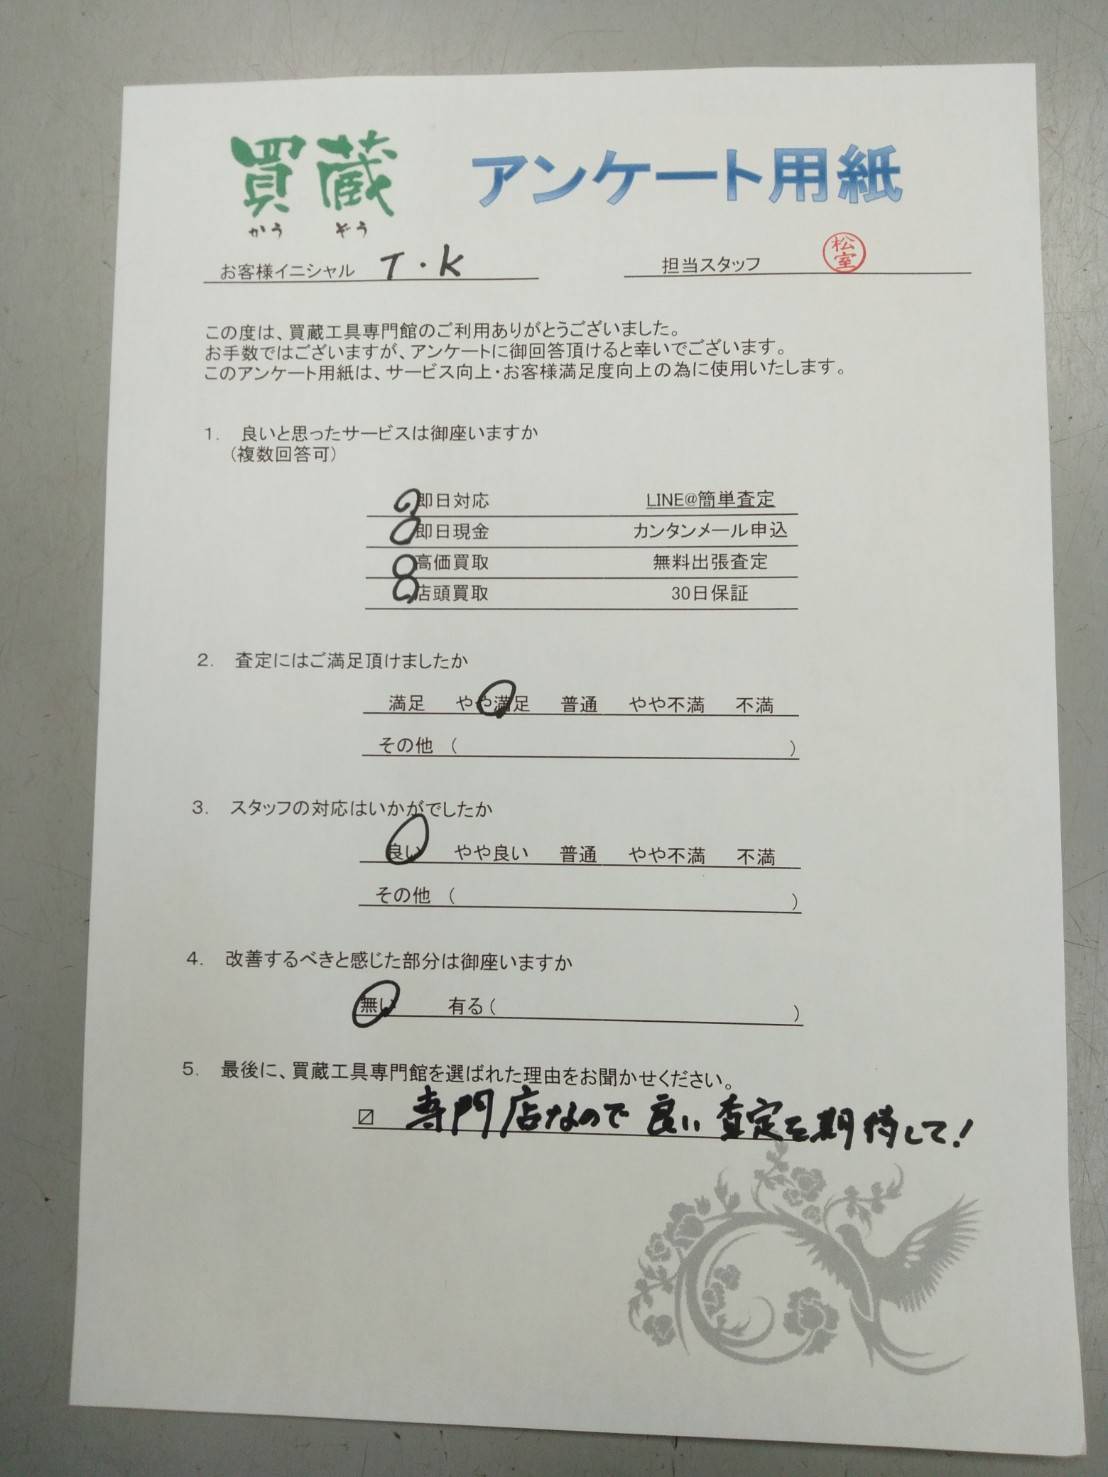 買蔵 アンケート用紙
かう ぞう
お客様イニシャル T・K 担当スタッフ 松室
この度は、買蔵工具専門館のご利用ありがとうございました。
お手数ではございますが、アンケートに御回答頂けると幸いでございます。
このアンケート用紙は、サービス向上・お客様満足度向上の為に使用いたします。
1. 良いと思ったサービスは御座いますか
(複数回答可)
即日対応 LINE@簡単査定
即日現金 カンタンメール申込
高価買取 無料出張査定
店頭買取 30日保証
2. 査定にはご満足頂けましたか
満足 やや満足 普通 やや不満 不満
その他 ( )
3. スタッフの対応はいかがでしたか
良い やや良い 普通 やや不満 不満
その他 ( )
4. 改善するべきと感じた部分は御座いますか
無い 有る( )
5. 最後に、買蔵工具専門館を選ばれた理由をお聞かせください。
専門店なので良い査定を期待して!